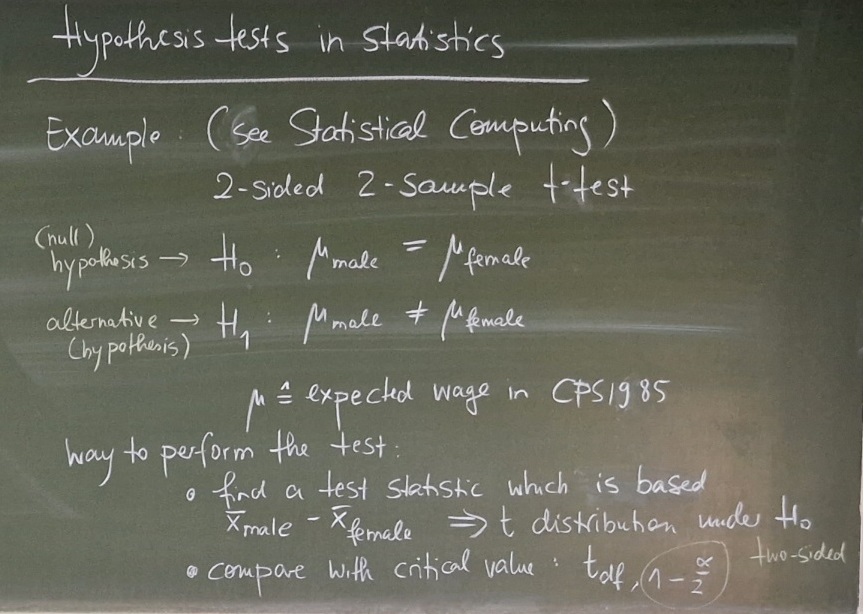 Hypothesis tests in Statistics
Example: (see Statistical Computing)
2-sided 2-sample t-test
(null)
hypothesis → H₀ : μ_male = μ_female
alternative → H₁ : μ_male ≠ μ_female
(hypothesis)
μ ≙ expected wage in CPS1985
way to perform the test:
• find a test statistic which is based
x̄_male - x̄_female ⇒ t distribution under H₀
• compare with critical value : t_df, 1-α/2 two-sided